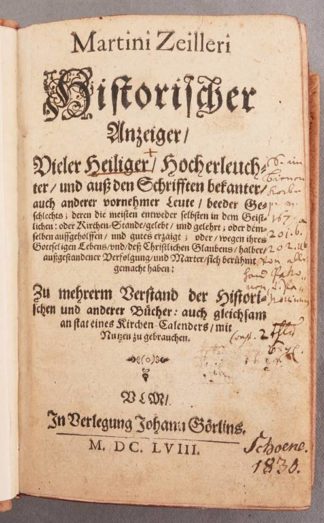 Martini Zeilleri
Historischer
Anzeiger/
Vieler Heiliger/ Hocherleuch-
ter/ und auß den Schrifften bekanter/
auch anderer vornehmer Leute/ beeder Ge-
schlechts; deren die meisten entweder selbsten in dem Geist-
lichen: oder Kirchen-Stande/gelebt/ und gelehrt; oder dem-
selben auffgeholffen/ und gutes erzeigt; oder/ wegen ihres
Gottseligen Lebens/und/deß Christlichen Glaubens/halber/
außgestandener Verfolgung/und Marter/sich berühmt
gemacht haben:
Zu mehrerm Verstand der Histori-
schen und anderer Bücher: auch gleichsam
an stat eines Kirchen-Calenders/mit
Nutzen zu gebrauchen.
ULM/
In Verlegung Johann Görlins.
M. DC. LVIII.
Schoene.
1830.